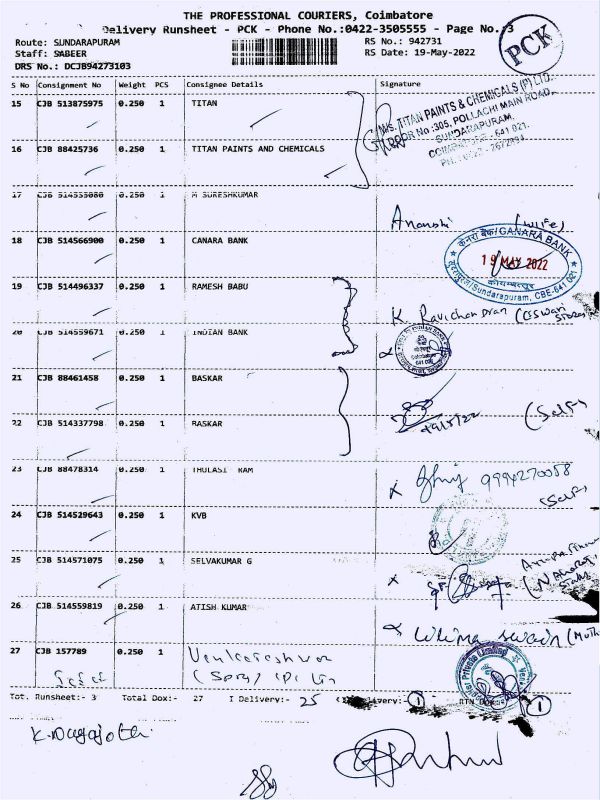 THE PROFESSIONAL COURIERS, Coimbatore
Delivery Runsheet - PCK - Phone No.:0422-3505555 - Page No.:3
Route: SUNDARAPURAM RS No.: 942731
Staff: SABEER RS Date: 19-May-2022
DRS No.: DCJB94273103
PCK
S No Consignment No Weight PCS Consignee Details Signature
15 CJB 513875975 0.250 1 TITAN
M/s. TITAN PAINTS & CHEMICALS (P) LTD.
DOOR No :305, POLLACHI MAIN ROAD,
SUNDARAPURAM,
16 CJB 88425736 0.250 1 TITAN PAINTS AND CHEMICALS
17 CJB 514555080 0.250 1 M SURESHKUMAR
(wife)
18 CJB 514566900 0.250 1 CANARA BANK
केनरा बैंक/CANARA BANK
19 MAY 2022
कोयम्बत्तूर
Sundarapuram, CBE-641 021
19 CJB 514496337 0.250 1 RAMESH BABU
K. Ravichandran
20 CJB 514559671 0.250 1 INDIAN BANK
21 CJB 88461458 0.250 1 BASKAR
19/5/22 (Self)
22 CJB 514337798 0.250 1 BASKAR
23 CJB 88478314 0.250 1 THULASI RAM
9994270058
(Self)
24 CJB 514529643 0.250 1 KVB
25 CJB 514571075 0.250 1 SELVAKUMAR G
26 CJB 514559819 0.250 1 ATISH KUMAR
27 CJB 157789 0.250 1
Tot. Runsheet:- 3 Total Dox:- 27 I Delivery:- 25 1 RTN Dox:- 1